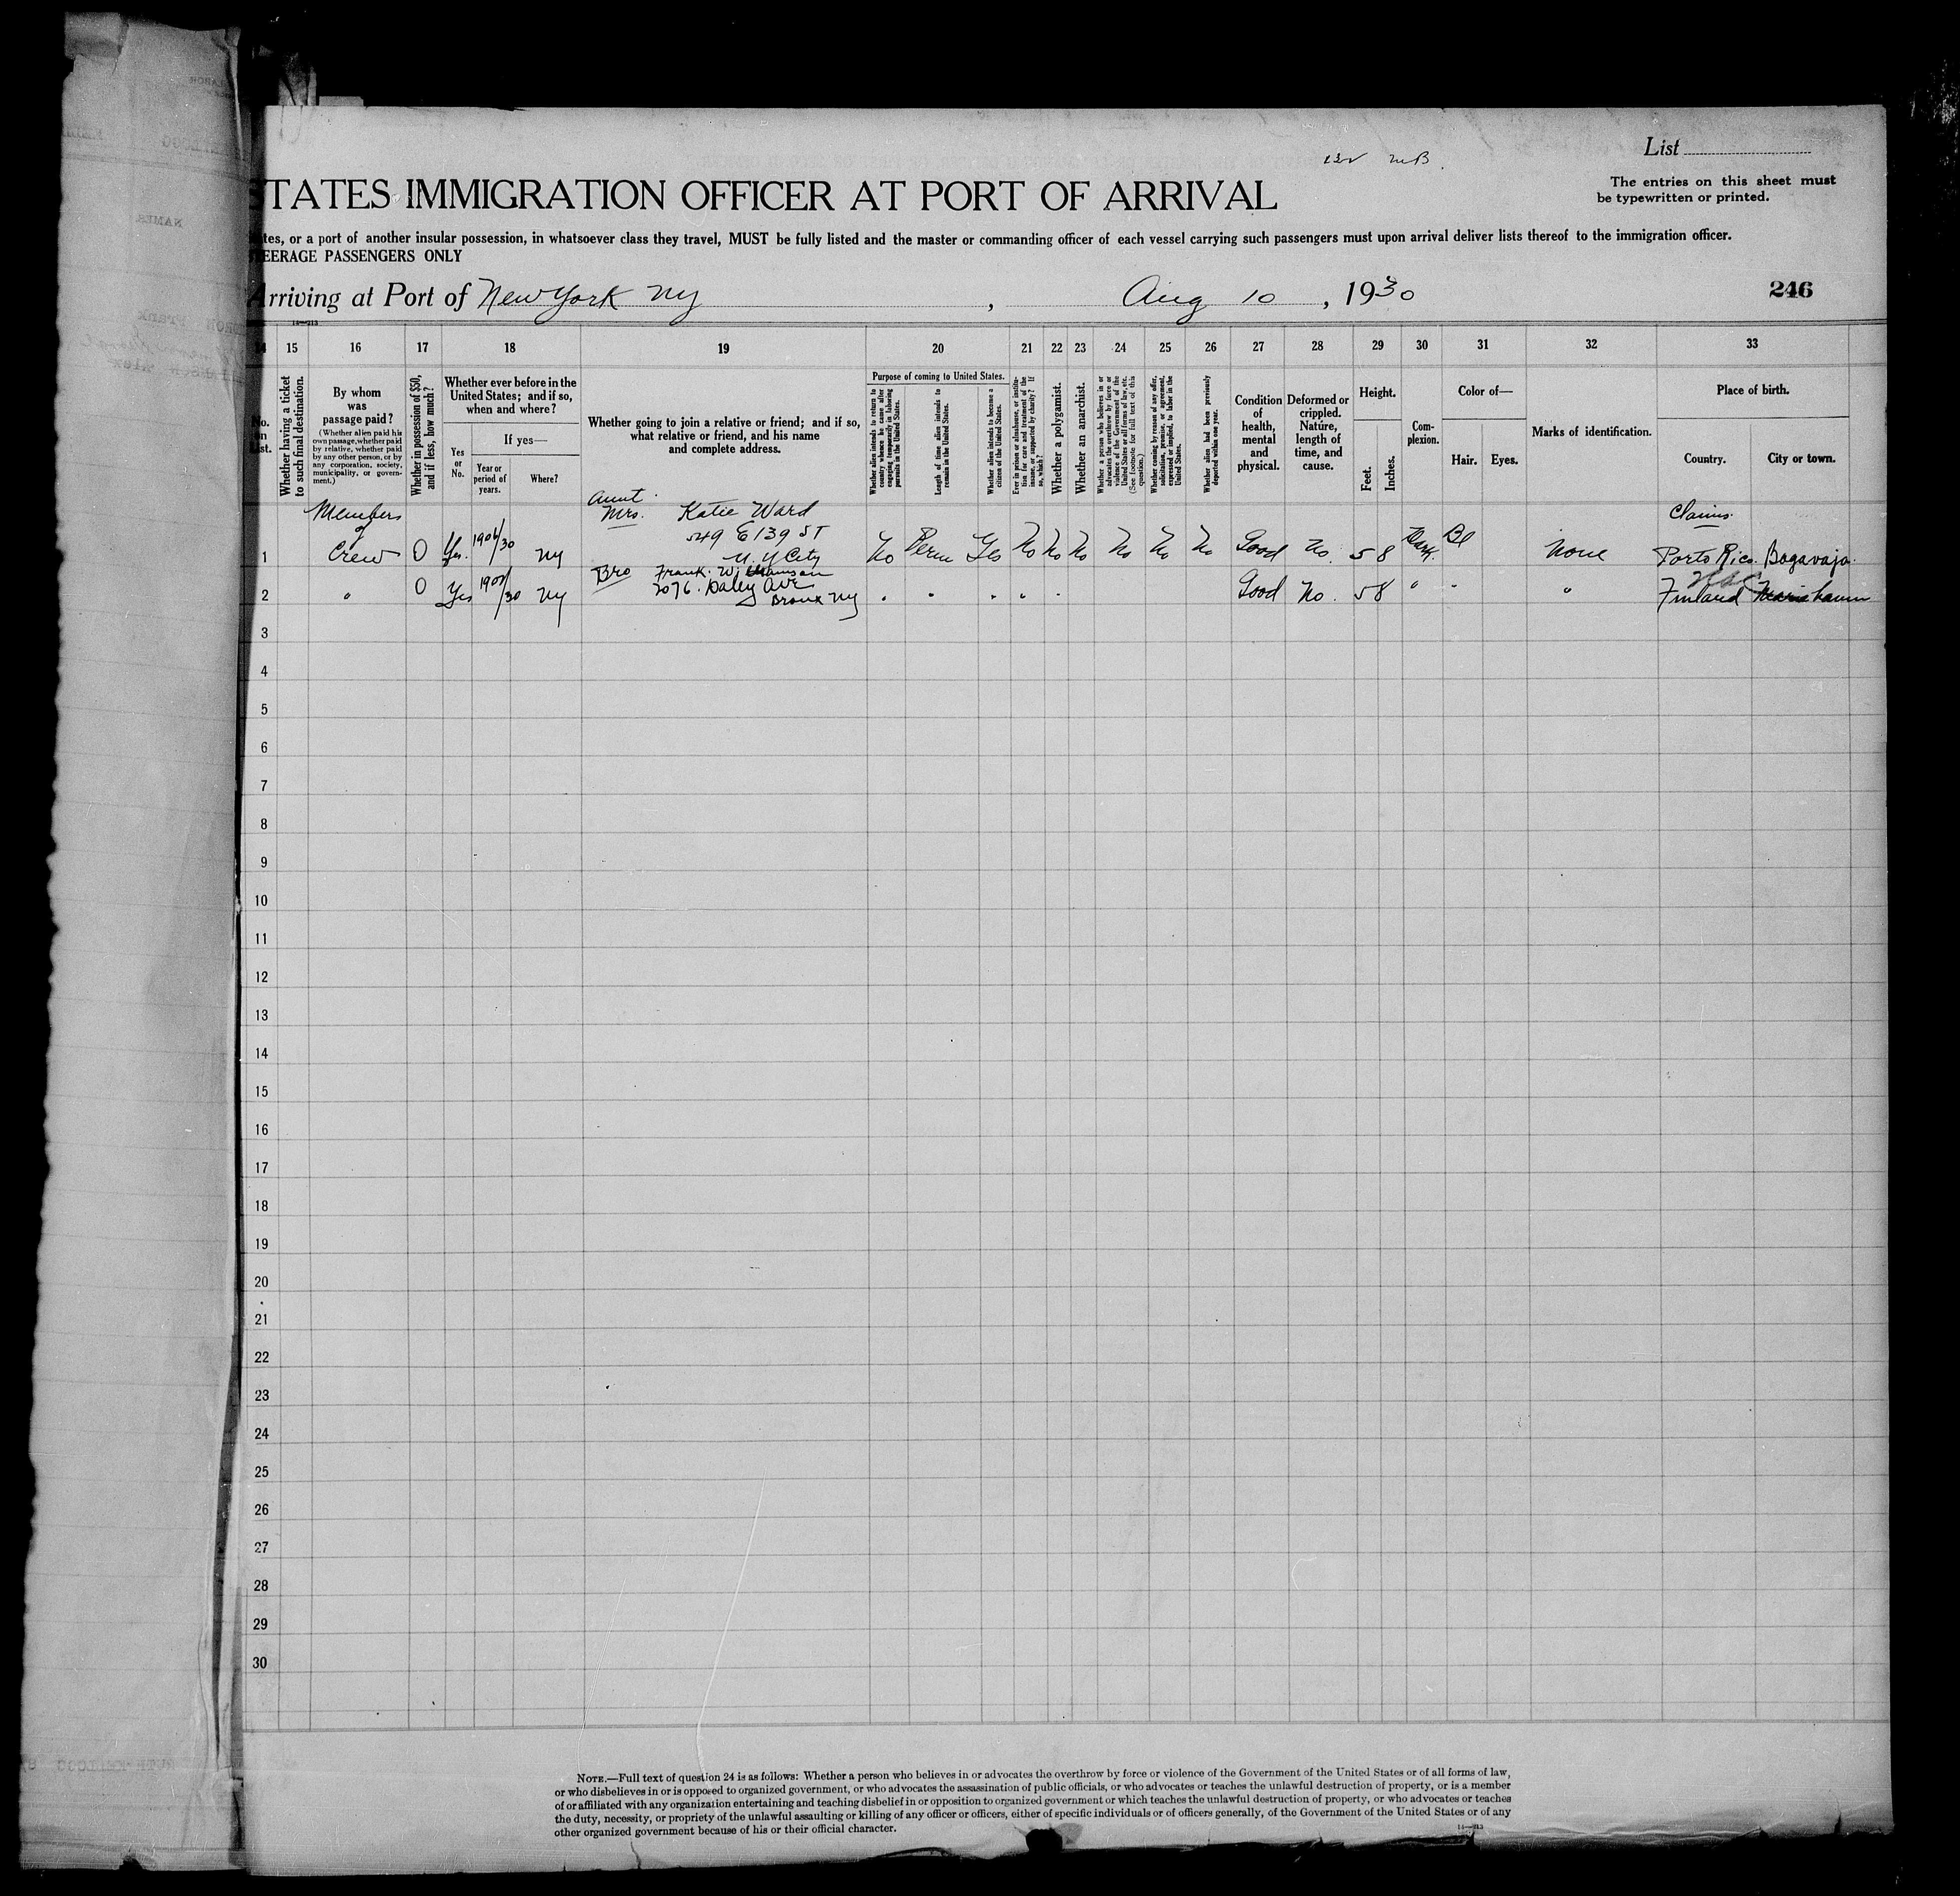 List
The entries on this sheet must
be typewritten or printed.
STATES IMMIGRATION OFFICER AT PORT OF ARRIVAL
ates, or a port of another insular possession, in whatsoever class they travel, MUST be fully listed and the master or commanding officer of each vessel carrying such passengers must upon arrival deliver lists thereof to the immigration officer.
TEERAGE PASSENGERS ONLY
Arriving at Port of New York NY , Aug 10 , 1930
246
14 15 16 17 18 19 20 21 22 23 24 25 26 27 28 29 30 31 32 33
No. on List.
Whether having a ticket to such final destination.
By whom was passage paid?
(Whether alien paid his own passage, whether paid by relative, whether paid by any other person, or by any corporation, society, municipality, or government.)
Whether in possession of $50, and if less, how much?
Whether ever before in the United States; and if so, when and where?
Yes or No.
If yes—
Year or period of years.
Where?
Whether going to join a relative or friend; and if so, what relative or friend, and his name and complete address.
Purpose of coming to United States.
Whether alien intends to return to country whence he came after engaging temporarily in laboring pursuits in the United States.
Length of time alien intends to remain in the United States.
Whether alien intends to become a citizen of the United States.
Ever in prison or almshouse, or institution for care and treatment of the insane, or supported by charity? If so, which?
Whether a polygamist.
Whether an anarchist.
Whether a person who believes in or advocates the overthrow by force or violence of the Government of the United States or all forms of law, etc. (See footnote for full text of this question.)
Whether coming by reason of any offer, solicitation, promise, or agreement, expressed or implied, to labor in the United States.
Whether alien had been previously deported within one year.
Condition of health, mental and physical.
Deformed or crippled. Nature, length of time, and cause.
Height.
Feet.
Inches.
Complexion.
Color of—
Hair.
Eyes.
Marks of identification.
Place of birth.
Country.
City or town.
Members of Crew 0 Yes. 1906/30 NY
Aunt
Mrs. Katie Ward
549 E 139 ST
N.Y City
No Perm Yes No No No No No No Good No. 5 8 Dark Bl None
Claims
Porto Rico. Bagavaja.
" 0 Yes /30 NY
Bro Frank.
2076. Daley Ave
Bronx NY
" " " " " Good No. 5 8 " " " Finland
1
2
3
4
5
6
7
8
9
10
11
12
13
14
15
16
17
18
19
20
21
22
23
24
25
26
27
28
29
30
NOTE.—Full text of question 24 is as follows: Whether a person who believes in or advocates the overthrow by force or violence of the Government of the United States or of all forms of law,
or who disbelieves in or is opposed to organized government, or who advocates the assassination of public officials, or who advocates or teaches the unlawful destruction of property, or is a member
of or affiliated with any organization entertaining and teaching disbelief in or opposition to organized government or which teaches the unlawful destruction of property, or who advocates or teaches
the duty, necessity, or propriety of the unlawful assaulting or killing of any officer or officers, either of specific individuals or of officers generally, of the Government of the United States or of any
other organized government because of his or their official character.
14—213